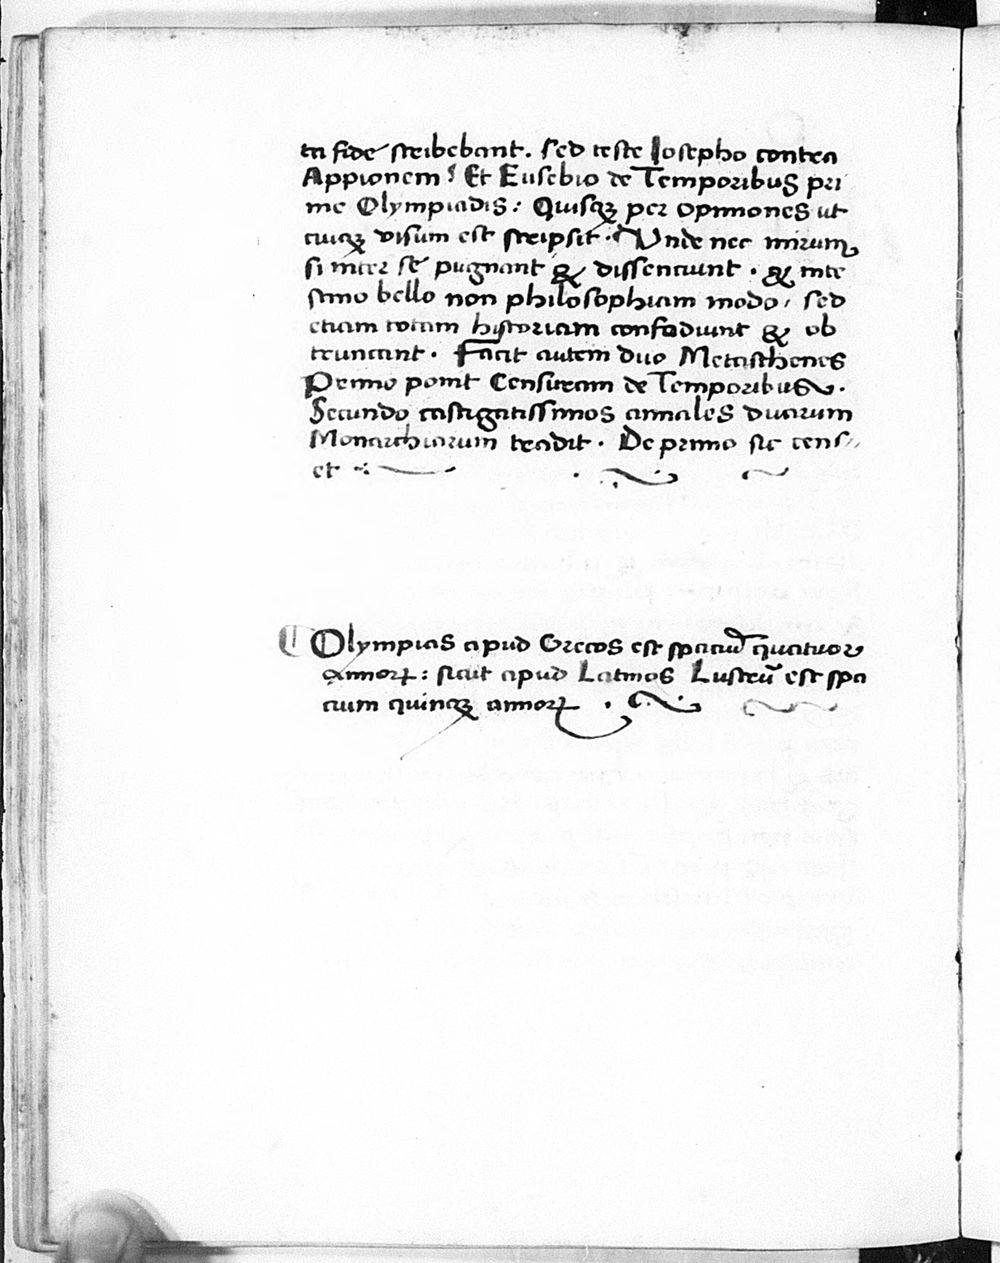 ta fide scribebant. sed teste Iosepho contra
Appionem: Et Eusebio de Temporibus pri
me Olympiadis: Quisqꝫ per opiniones ut
cuiqꝫ visum est scripsit. Vnde nec mirum,
si inter se pugnant & dissentiunt. & inte
stino bello non philosophiam modo, sed
etiam totam historiam confodiunt & ob
truncant. Facit autem duo Metasthenes
Primo ponit Censuram de Temporibus.
Secundo castigatissimos annales duarum
Monarchiarum tradit. De primo sic cens//
et
¶ Olympias apud Grecos est spaciū quatuor
annoꝝ: sicut apud Latinos Lustrū est spa
cium quinqꝫ annoꝝ.